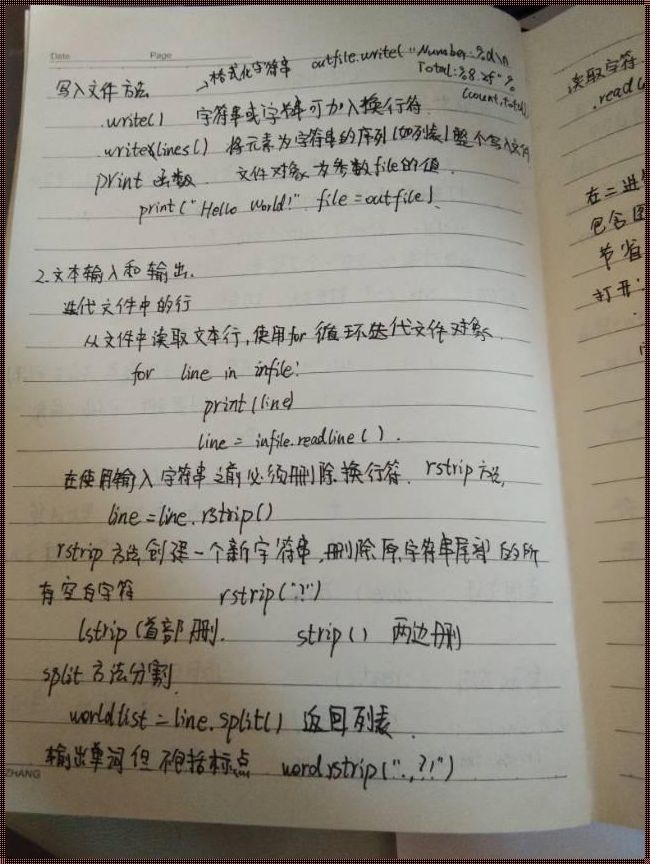 Date Page
→格式化字符串 outfile.write("Number:%d\n
Total:%8.2f"%
(count,total)
写入文件方法
.write() 字符串或字符串可加入换行符.
.writelines() 将元素为字符串的序列(如列表)整个写入文件
print 函数. 文件对象为参数file的值.
print("Hello World!" file=outfile)
2.文本输入和输出.
迭代文件中的行
从文件中读取文本行,使用for 循环迭代文件对象.
for line in infile:
print(line)
line = infile.readline().
在使用输入字符串之前必须删除换行符. rstrip方法,
line=line.rstrip()
rstrip方法创建一个新字符串,删除原字符串尾部的所
有空白字符 rstrip(".?")
lstrip(首部删. strip() 两边删
split方法分割
worldlist=line.split() 返回列表.
输出单词但不包括标点 word.rstrip(".,?!")
ZHANG
读取字符
.read(
在二进
包含图
节省
打开: